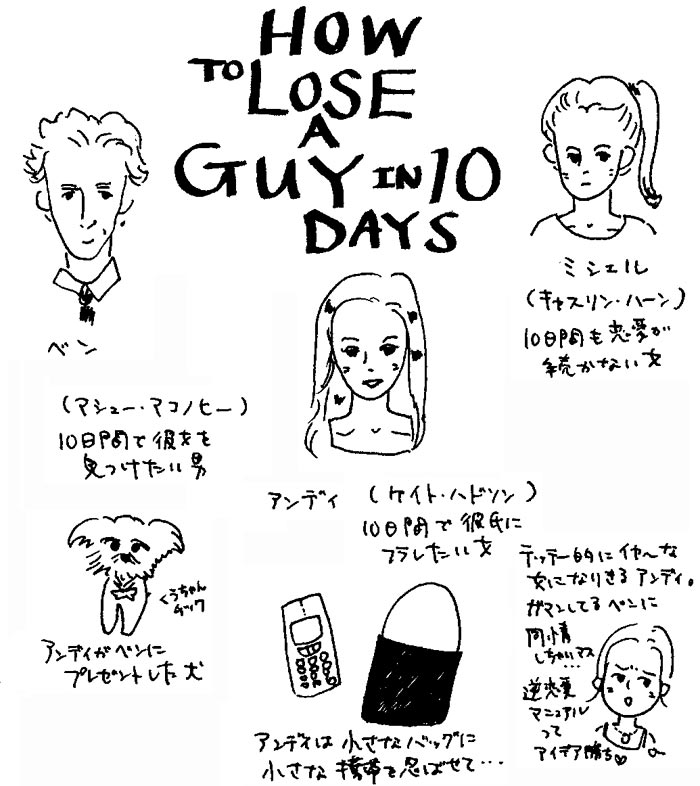 HOW
TO LOSE
A
GUY IN 10
DAYS
ベン
(マシュー・マコノヒー)
10日間で彼女を
見つけたい男
ミシェル
(キャスリン・ハーン)
10日間も恋愛が
続かない女
アンディ (ケイト・ハドソン)
10日間で彼氏に
フラレたい女
くぅちゃん
チック
アンディがベンに
プレゼントした犬
アンディは小さなバッグに
小さな携帯を忍ばせて…
テッテー的にイヤ〜な
女になりきるアンディ。
ガマンしてるベンに
同情
しちゃいマス
…
逆恋愛
マニュアル
って
アイデア勝ち♡